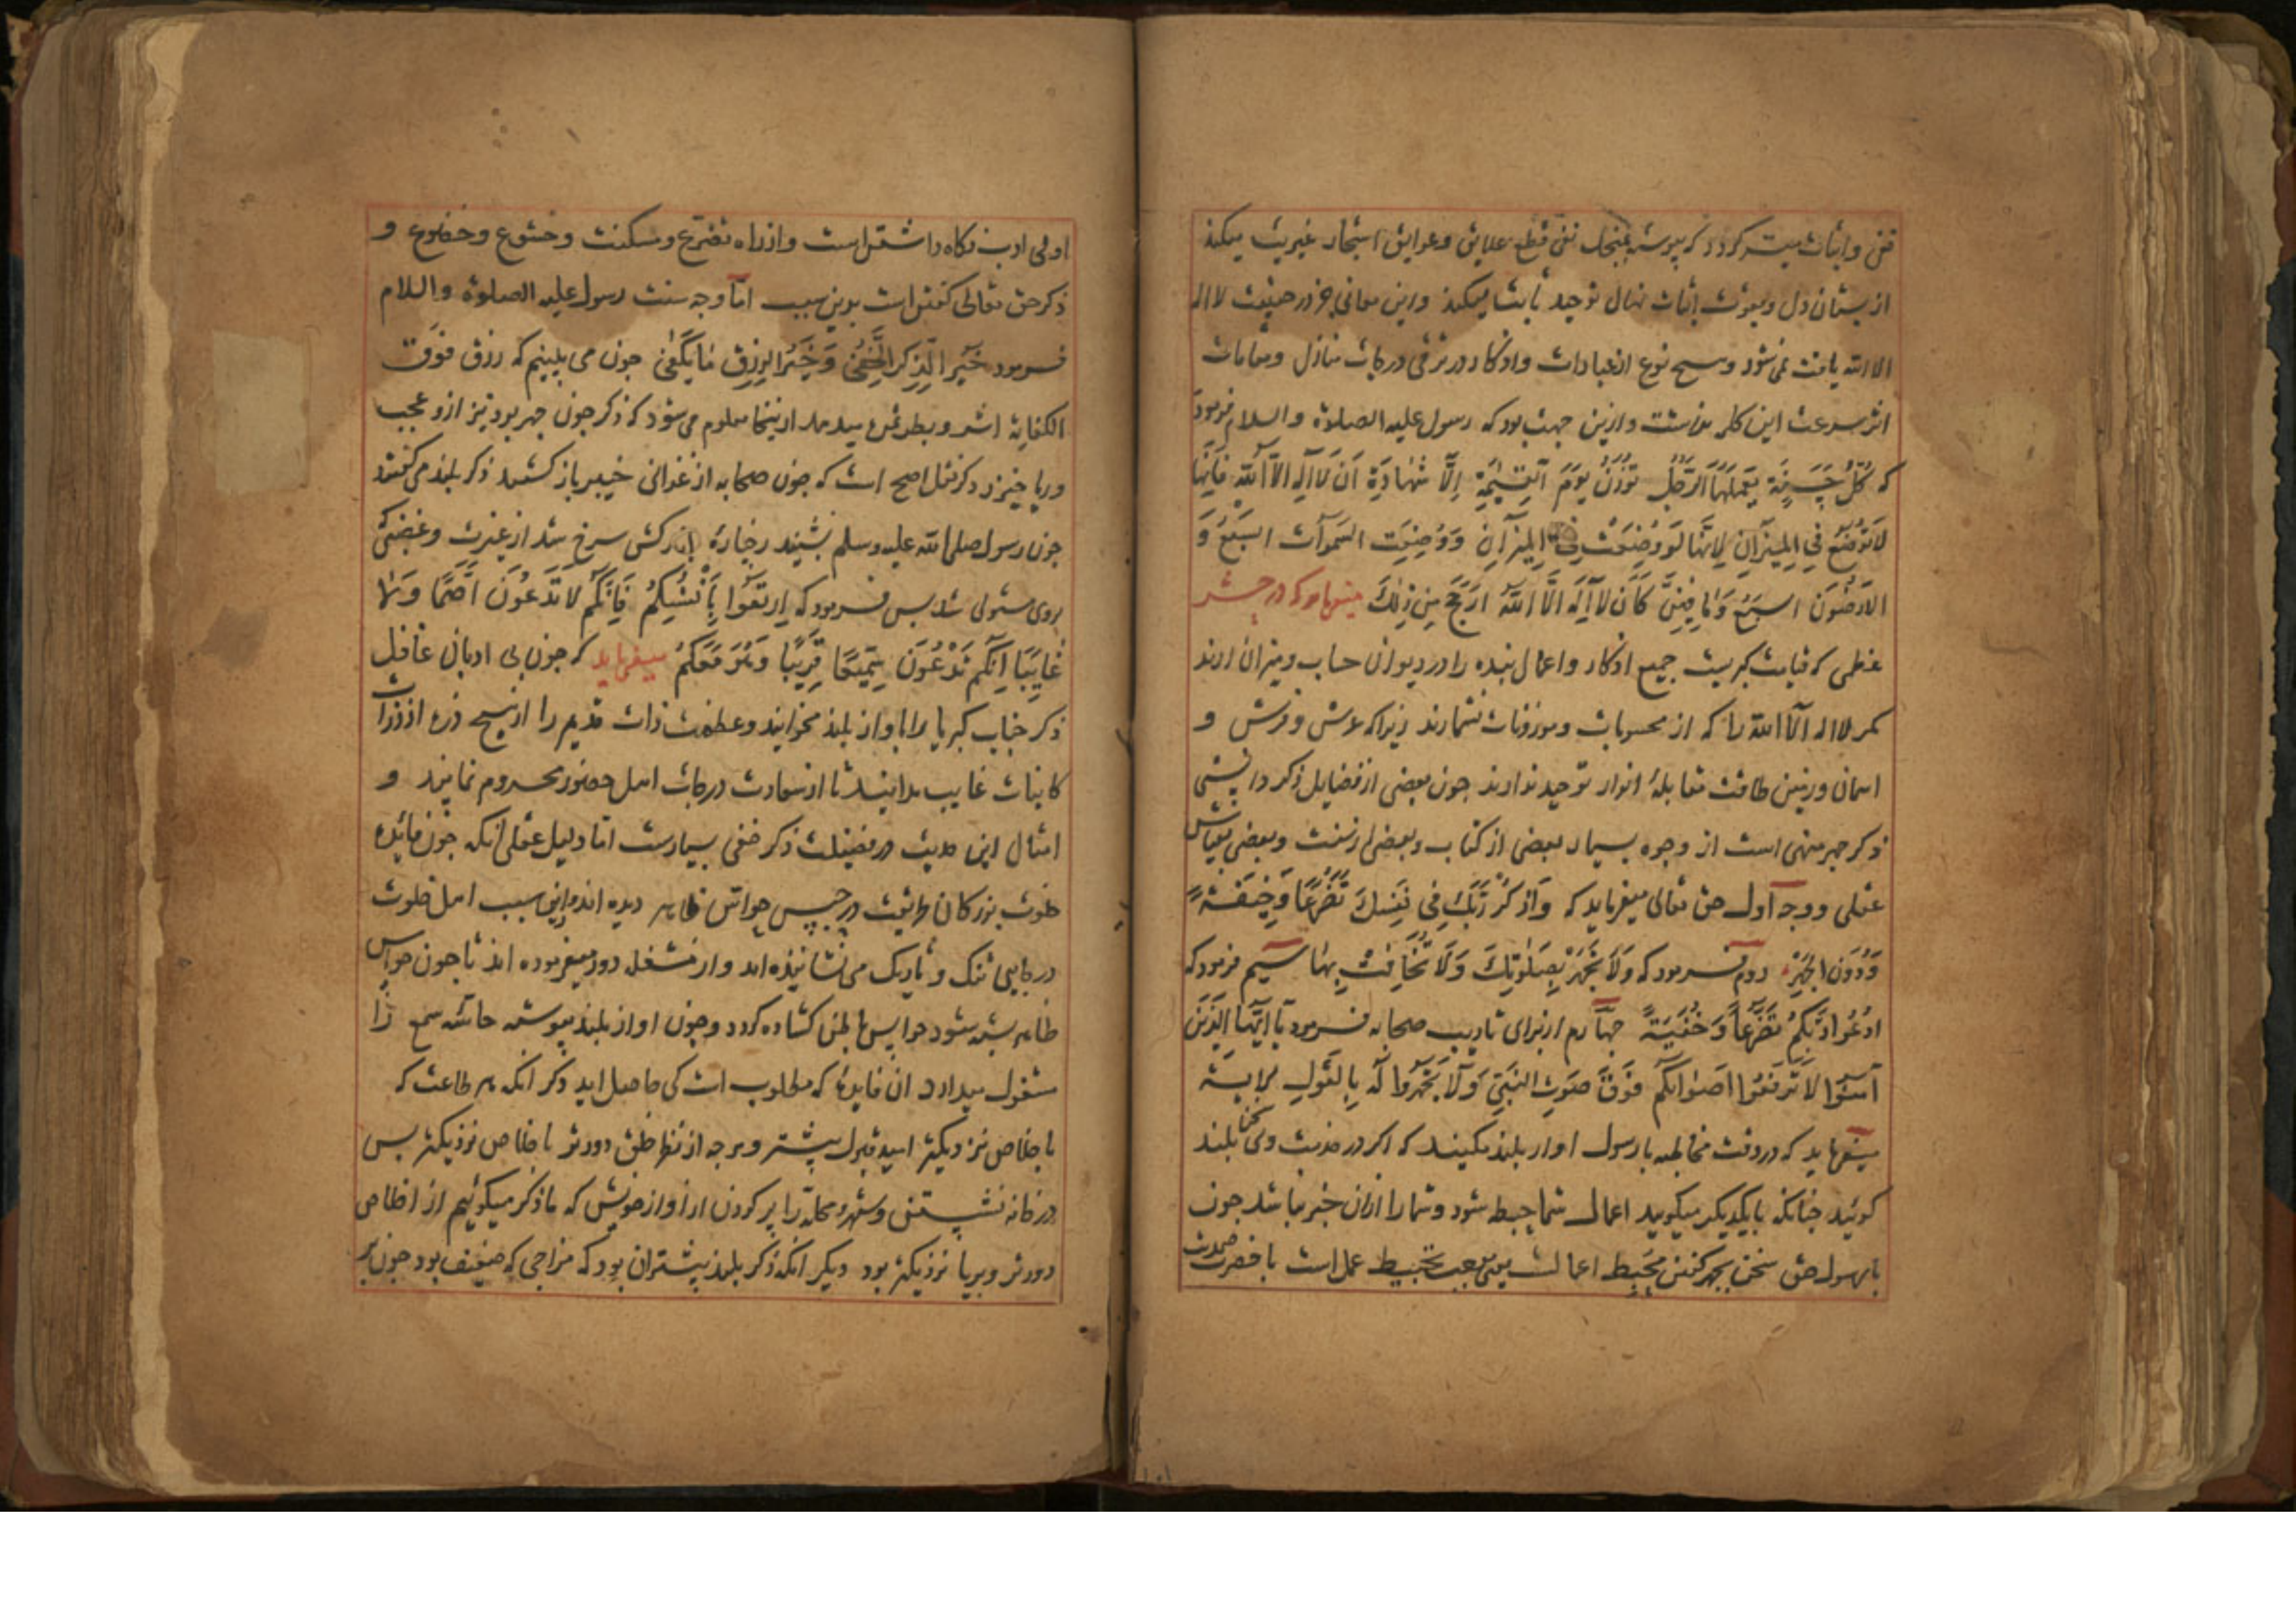 نفی و اثبات میسر کردد که پیوسته بمنجل نفی قطع علایق و عوایق اشجار غیریت میکند
از بستان دل و بقوت اثبات نهال توحید ثابت میکند و این معانی جز در حقیقت لا اله
الا الله یافت نمی شود و هیچ نوع از عبادات و اذکار در ترقی درجات منازل و مقامات
اثر سرعت این کلمه نداشت و ازین جهت بود که رسول علیه الصلوة و السلام فرمود
که کُلُّ حَسَنَةٍ یَعْمَلُهَا الرَّجُلُ تُوزَنُ یَوْمَ القِیٰمَةِ اِلَّا شَهَادَةِ اَنْ لَا اِلٰهَ اِلَّا اللّٰهُ فَاِنَّهَا
لَا تُوضَعُ فِی المِیزَانِ لِاَنَّهَا لَوْ وُضِعَتْ فِی المِیزَانِ وَ وُضِعَتِ السَّمٰوَاتُ السَّبْعُ وَ
الاَرَضُونَ السَّبْعُ وَمَا فِیهِنَّ کَانَ لَا اِلٰهَ اِلَّا اللّٰهُ اَرْجَحَ مِنْ ذٰلِکَ میفرماید که در حشر
عظمی که قیامت کبریست جمیع اذکار و اعمال بنده را در دیوان حساب و میزان ارند
مکر لا اله الا الله را که از محسوبات و موزونات نشمارند زیرا که عرش و فرش و
اسمان و زمین طاقت مقابلهٔ انوار توحید ندارند جون بعضی از فضایل ذکر دانستی
ذکر جهر منهی است از وجوه بسیار بعضی از کتاب و بعضی از سنت و بعضی بقیاس
عقلی و وجه اول حق تعالی میفرماید که وَاذْکُرْ رَبَّکَ فِی نَفْسِکَ تَضَرُّعًا وَ خِیفَةً
وَدُونَ الجَهْرِ دوم فرمود که وَلَا تَجْهَرْ بِصَلٰوتِکَ وَلَا تُخَافِتْ بِهَا سیم فرمود که
ادْعُوا رَبَّکُمْ تَضَرُّعًا وَ خُفْیَةً جهارم از برای تادیب صحابه فرمود یَا اَیُّهَا الَّذِینَ
آمَنُوا لَا تَرْفَعُوا اَصْوَاتَکُمْ فَوْقَ صَوْتِ النَّبِیِّ وَلَا تَجْهَرُوا لَهُ بِالقَوْلِ الآیة
میفرماید که در وقت مخاطبه با رسول اواز بلند مکنید که اکر در حضرت وی سخن بلند
کوئید جنانکه با یکدیکر میکویید اعمال شما حبط شود و شما را ازان خبر نباشد جون
با رسول حق سخن بجهر کفتن محبط اعمالست یعنی موجب تحبیط عمل است با حضرت صمدیت
اولی ادب نکاه داشتن است و از راه تضرع و مسکنت و خشوع و خضوع و
ذکر حق تعالی کفتن است بدین سبب اما وجه سنت رسول علیه الصلوة و السلام
فرمود خَیْرُ الذِّکْرِ الخَفِیُّ وَ خَیْرُ الرِّزْقِ مَا یَکْفِی جون می بینیم که رزق فوق
الکفایة اشر و بطر ثمره میدهد ازینجا معلوم می شود که ذکر جون جهر بود نیز ازو عجب
و ریا خیزد و دکر نقل اصح است که جون صحابه از غزای خیبر باز کشتند ذکر بلند می کفتند
جون رسول صلی الله علیه و سلم بشنید رخساره مبارکش سرخ شد از غیرت و غضبی که
بروی مستولی شد بس فرمود که اِرْبَعُوا بِاَنْفُسِکُمْ فَاِنَّکُمْ لَا تَدْعُونَ اَصَمًّا وَلَا
غَایِبًا اِنَّکُمْ تَدْعُونَ سَمِیعًا قَرِیبًا وَ هُوَ مَعَکُمْ میفرماید که جون بی ادبان غافل
ذکر جناب کبریا را باواز بلند مخوانید و عظمت ذات قدیم را از هیچ ذره از ذرات
کاینات غایب مدانید تا از سعادت درجات اهل حضور محروم نمانید و
امثال این حدیث در فضیلت ذکر خفی بسیارست اما دلیل عقلی انکه جون فایدهٔ
خلوت بزرکان طریقت در حبس حواس ظاهر دیده اند و ازین سبب اهل خلوت
در جایی تنک و تاریک می نشانیده اند و از مشغله دور میفرموده اند تا جون حواس
ظاهر بسته شود حواس باطن کشاده کردد و جون اواز بلند پیوسته حاسه سمع را
مشغول میدارد ان فایدهٔ که مطلوب است کی حاصل اید دکر انکه هر طاعت که
باخلاص نزدیکتر امید قبول بیشتر و هرجه از نظر خلق دورتر باخلاص نزدیکتر بس
در خانه نشستن و شهر و محله را پر کردن از اواز خویش که ما ذکر میکوئیم از اخلاص
دورتر و بریا نزدیکتر بود دیکر انکه ذکر بلند بیشتر ان بود که مزاجی که ضعیف بود جون بر